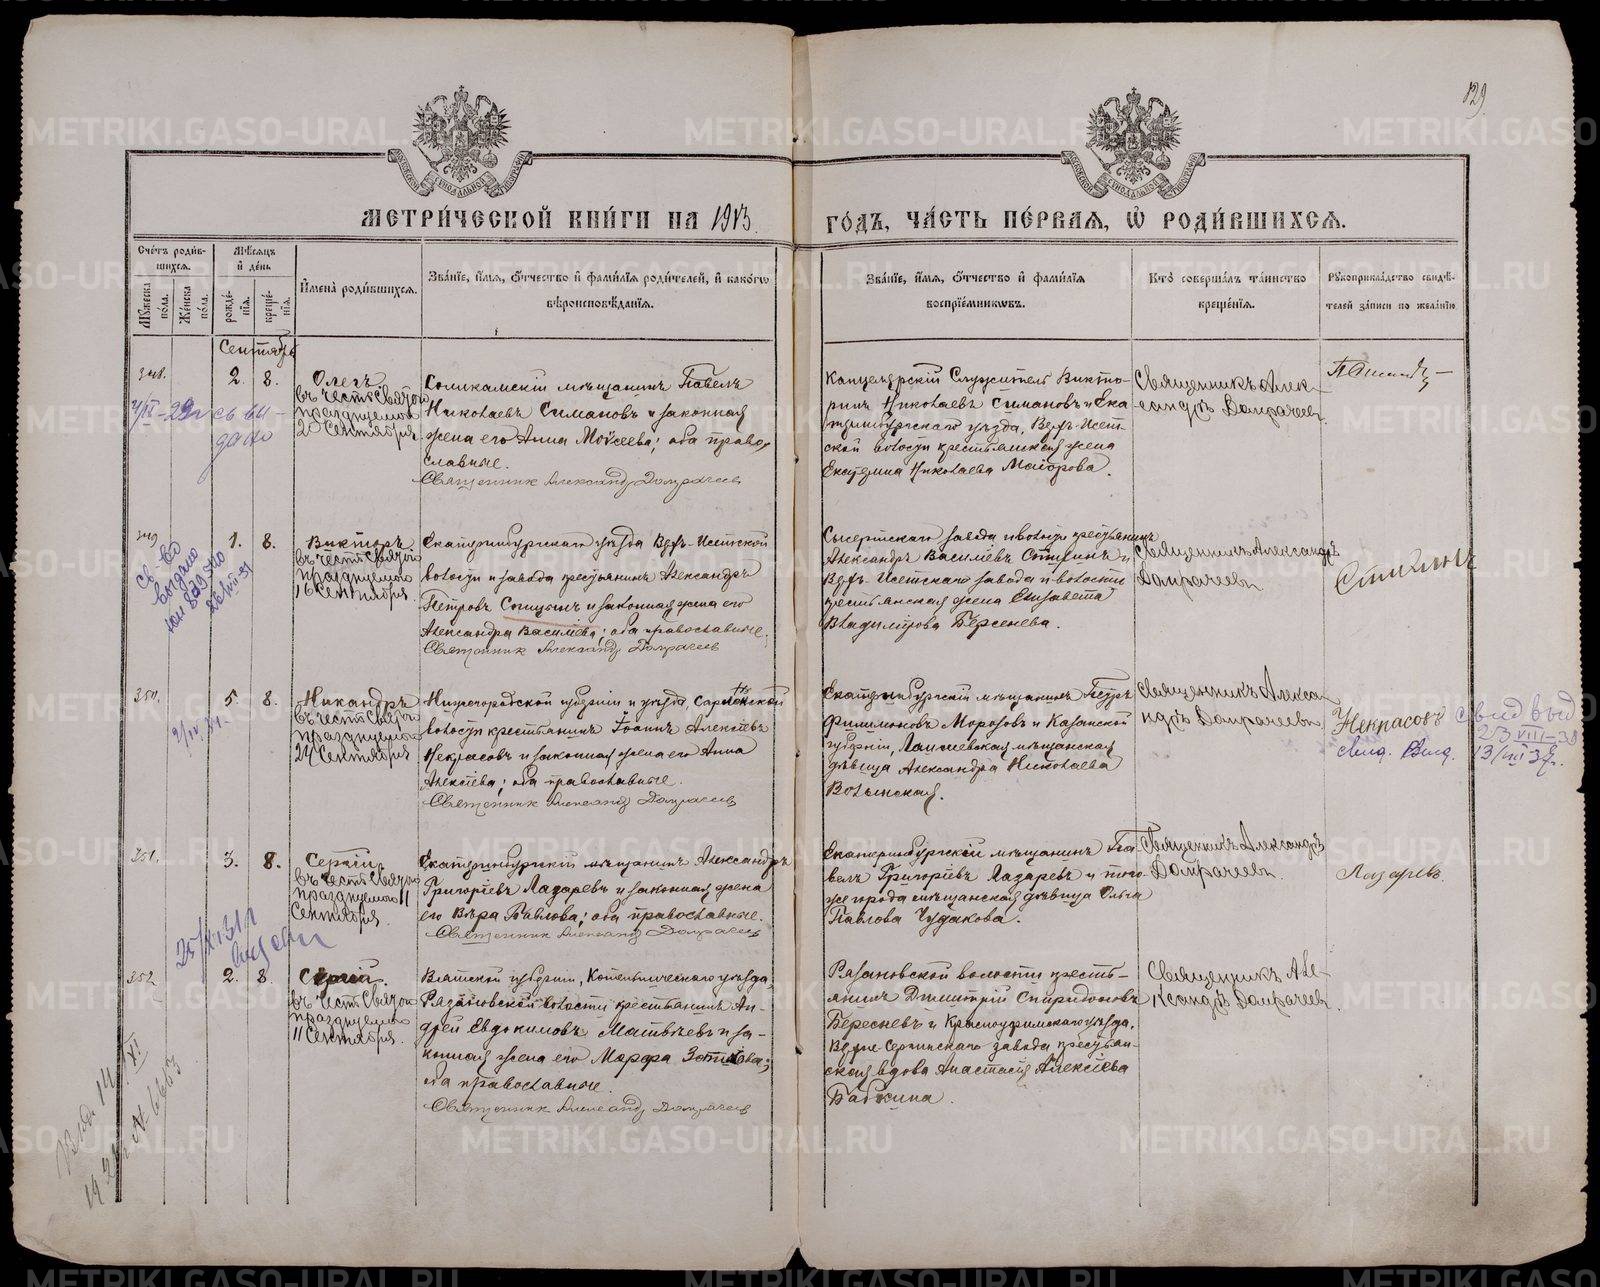 129
МЕТРИЧЕСКОЙ КНИГИ НА 1913.
ГОДЪ, ЧАСТЬ ПЕРВАЯ, Ѡ РОДИВШИХСЯ.
Счетъ родив-
шихся.
Мужеска пола.
Женска пола.
Мѣсяцъ и день
рожде-
нія.
креще-
нія.
Имена родившихся.
Званіе, имя, отчество и фамилія родителей, и какогѡ
вѣроисповѣданія.
Званіе, имя, отчество и фамилія
воспріемникѡвъ.
Кто совершалъ таинство
крещенія.
Рукоприкладство свидѣ-
телей записи по желанію.
Сентябрь
348.
2. 8.
Олегъ
въ честь Святого
празднуемого
20 Сентября.
Соликамскій мѣщанинъ Павелъ
Николаевъ Симановъ и законная
жена его Анна Моѵсеева; оба право-
славные.
Священник Александр Домрачеев
Канцелярскій Служитель Викто-
ринъ Николаевъ Симановъ и Ека-
теринбургскаго уѣзда, Верхъ-Исет-
ской волости крестьянская жена
Екатерина Николаева Маіорова.
Священникъ Алек-
сандръ Домрачеевъ
349
1. 8.
Викторъ
въ честь Святого
празднуемого
16 Сентября.
Екатеринбургскаго уѣзда Верхъ-Исетской
волости и завода крестьянинъ Александръ
Петровъ Спицынъ и законная жена его
Александра Василіева; оба православные.
Священник Александр Домрачеев
Сысертскаго завода и волости крестьянинъ
Александръ Василіевъ и
Верхъ-Исетскаго завода и волости
крестьянская жена Елизавета
Владимірова Берсенева.
Священникъ Александръ
Домрачеевъ
350.
5. 8.
Никандръ
въ честь Святого
празднуемого
24 Сентября
Нижегородской губерніи и уѣзда
волости крестьянинъ Іоаннъ Алексіевъ
Некрасовъ и законная жена его Анна
Алексіева; оба православные.
Священник Александр Домрачеев
Екатеринбургскій мѣщанинъ Петръ
Филимоновъ Морозовъ и Казанской
губерніи, Лаишевская мѣщанская
дѣвица Александра Николаева
Волынская.
Священникъ Алекса-
ндръ Домрачеевъ
Некрасовъ
свид выд
23 VIII-38
13/III 37г.
351.
3. 8.
Сергій
въ честь Святого
празднуемого 11
Сентября.
Екатеринбургскій мѣщанинъ Александръ
Григоріевъ Лазаревъ и законная жена
его Вѣра Павлова; оба православные.
Священник Александр Домрачеев
Екатеринбургскій мѣщанинъ Па-
велъ Григоріевъ Лазаревъ и того-
же города мѣщанская дѣвица Ольга
Павлова Чудакова.
Священникъ Александръ
Домрачеевъ.
Лазаревъ
352.
2. 8.
Сергій.
въ честь Святого
празднуемого
11 Сентября.
Вятской губерніи, Котельническаго уѣзда,
Рязановской волости крестьянинъ Ан-
дрей Евдокимовъ Матвѣевъ и за-
конная жена его Марфа Зотикова;
оба православные.
Священник Александр Домрачеев
Рязановской волости кресть-
янинъ Димитрій Спиридоновъ
Бересневъ и Красноуфимскаго уѣзда,
Верхне-Сергинскаго завода крестьян-
ская вдова Анастасія Алексіева
Бабкина.
Священникъ Але-
ксандръ Домрачеевъ
METRIKI.GASO-URAL.RU